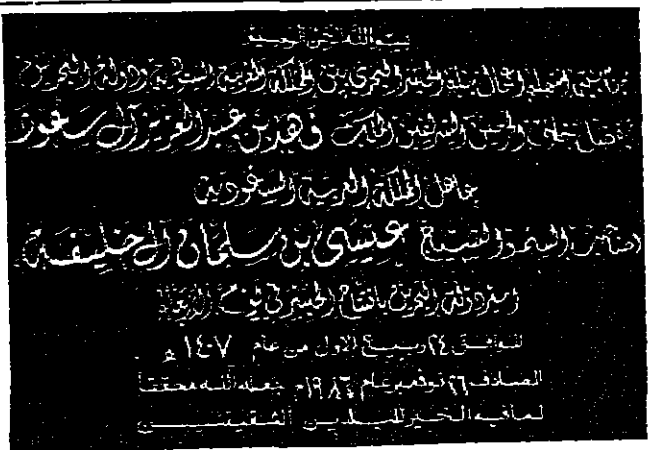 بسم الله الرحمن الرحيم
اعمال بناء الجسر البحري بين المملكة العربية السعودية ودولة البحرين
تفضل خادم الحرمين الشريفين الملك فهد بن عبد العزيز آل سعود
عاهل المملكة العربية السعودية
وصاحب السمو الشيخ عيسى بن سلمان آل خليفة
امير دولة البحرين بافتتاح الجسر في يوم الاربعاء
الموافق ٢٤ ربيع الاول من عام ١٤٠٧ هـ
المصادف ٢٦ نوفمبر عام ١٩٨٦م جعله الله محققا
لما فيه الخير للبلدين الشقيقين